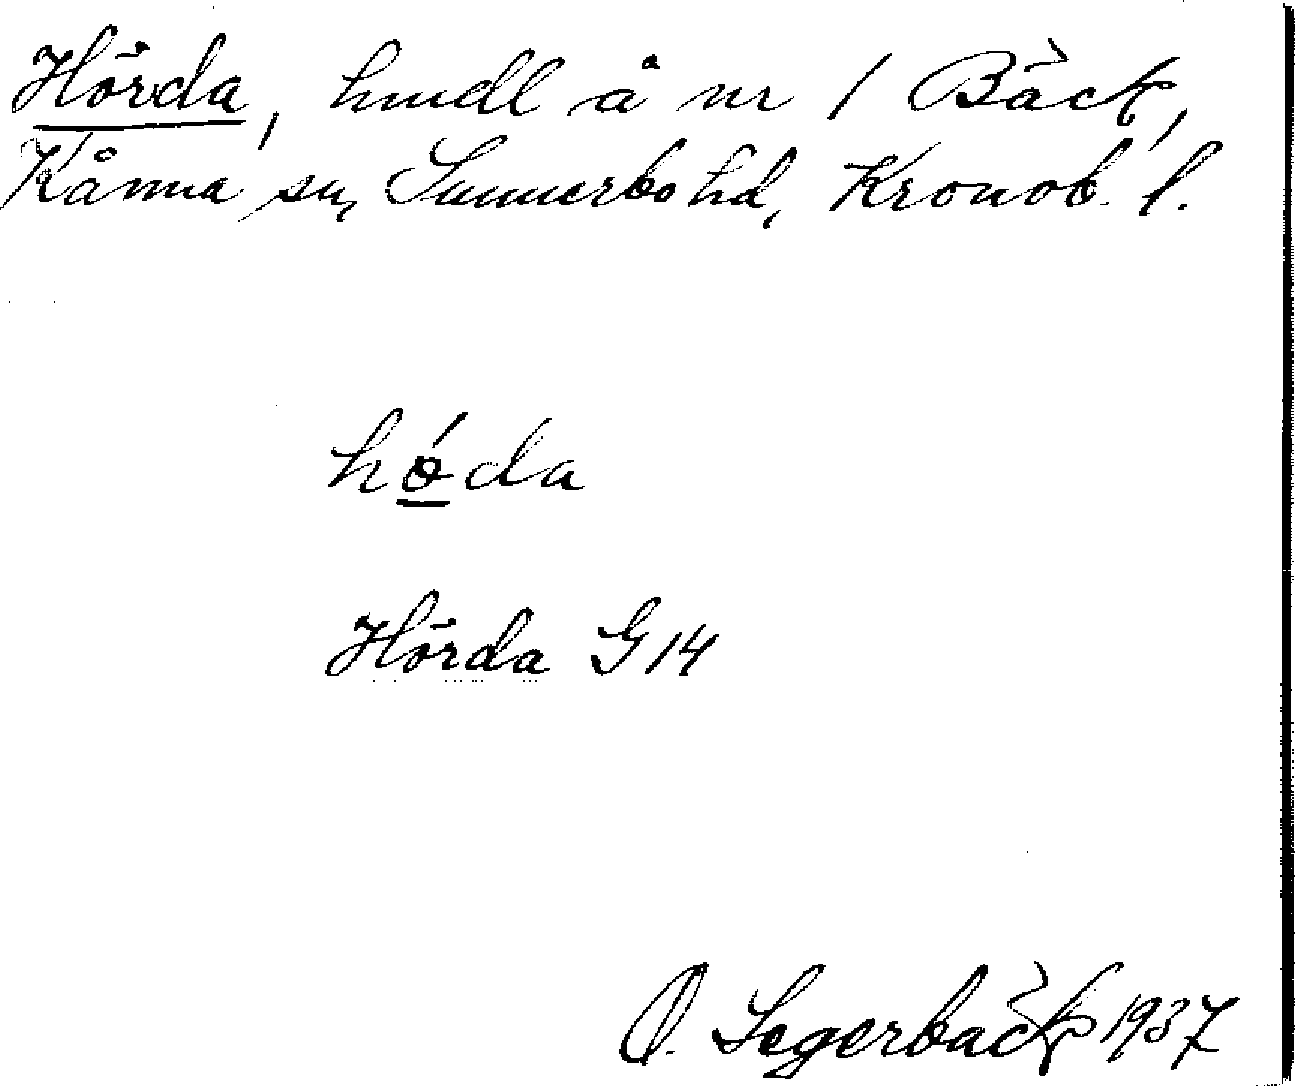 Hörda, hmdl å nr 1 Bäck,
Kånna sn, Sunnerbo hd, Kronob. l.
hǿda
Hörda G14
O. Segerbäck 1937